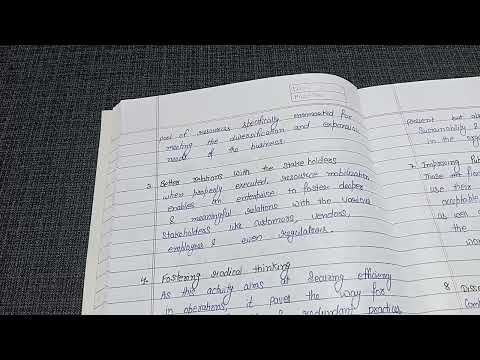 pool of resources specifically earmarked for
meeting the diversification and expansion
needs of the business.
3. Better relations with the stakeholders
when properly executed, resource mobilization
enables an enterprise to foster deeper
& meaningful relations with the various
stakeholders like customers, vendors,
employees & even regulators.
4. Fostering radical thinking
As this activity aims at securing efficiency
in operations, it paves the way for
& redundant practices
present but also
Sustainability &
in the
7. Improving
These are
use their
acceptable
as well as
the
8